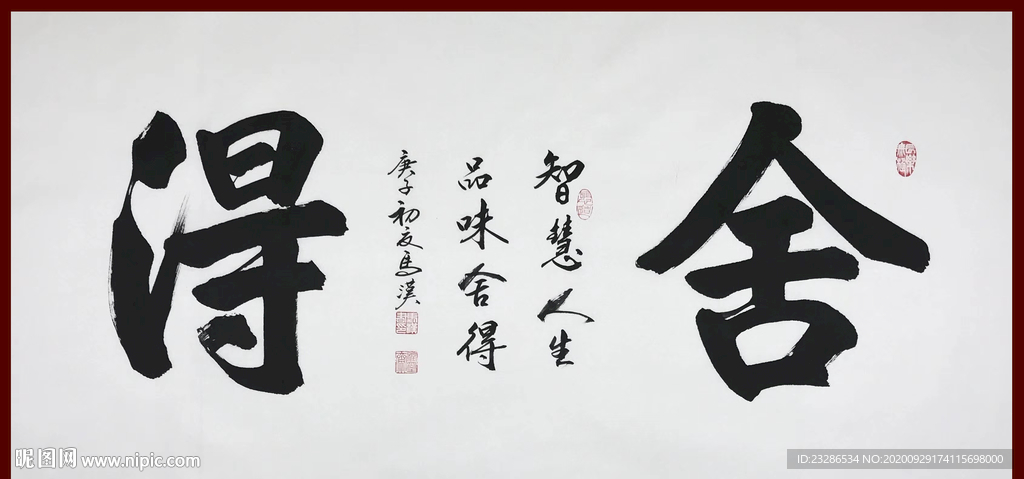 舍得
智慧人生
品味舍得
庚子初夏馬漢
昵图网 www.nipic.com
ID:23286534 NO:20200929174115698000